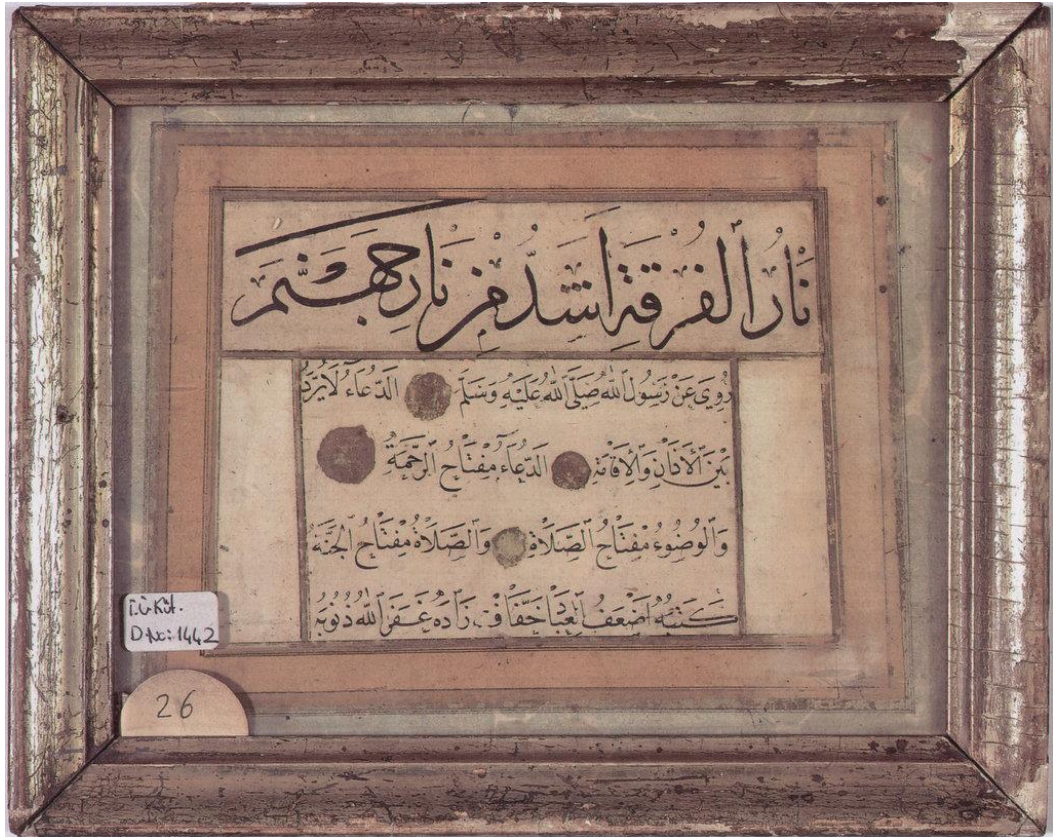 نَارُ الْفُرْقَةِ اَشَدُّ مِنْ نَارِ جَهَنَّمَ
رُوِيَ عَنْ رَسُولِ اللّٰهِ صَلَّى اللّٰهُ عَلَيْهِ وَسَلَّمَ الدُّعَاءُ لَا يُرَدُّ
بَيْنَ الْاَذَانِ وَالْاِقَامَةِ الدُّعَاءُ مِفْتَاحُ الرَّحْمَةِ
وَالْوُضُوءُ مِفْتَاحُ الصَّلَاةِ وَالصَّلَاةُ مِفْتَاحُ الْجَنَّةِ
كَتَبَهُ اَضْعَفُ الْعِبَادِ خفاف زاده غَفَرَ اللّٰهُ ذُنُوبَهُ
İ.Ü.Küt.
D.No:1442
26